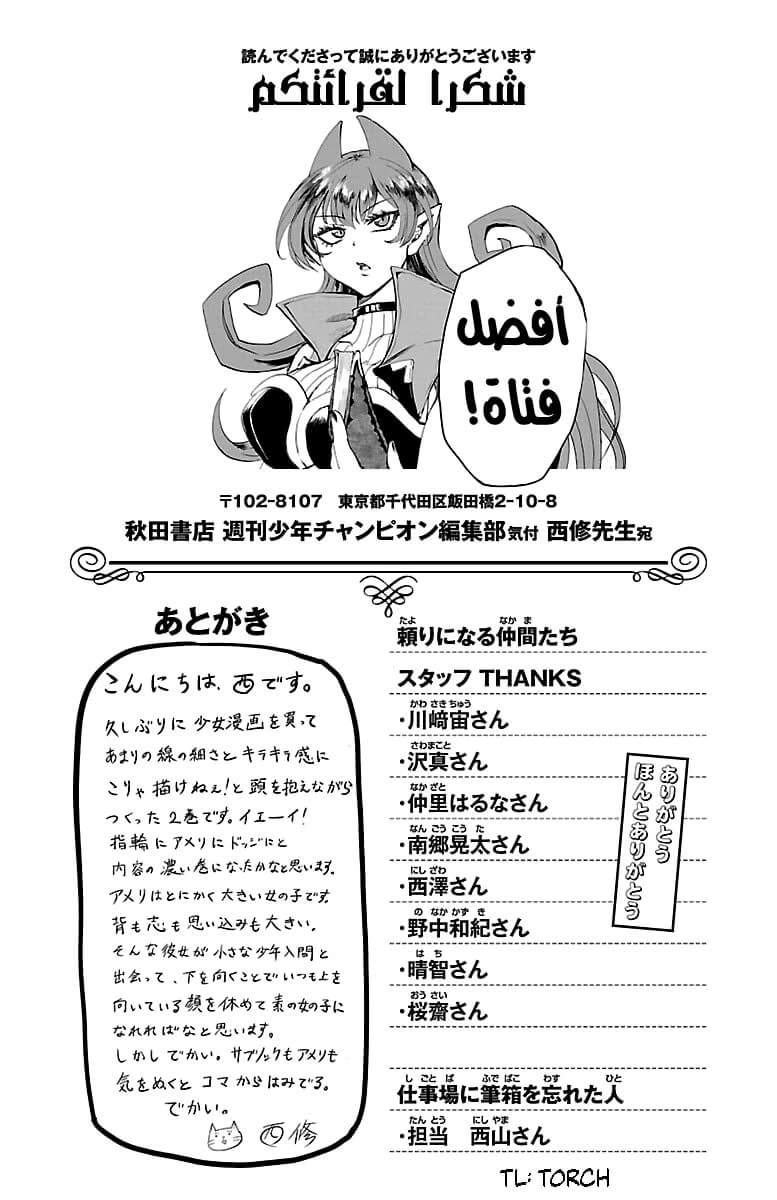 読んでくださって誠にありがとうございます
شكرا لقرائتكم
أفضل
فتاة!
〒102-8107 東京都千代田区飯田橋2-10-8
秋田書店 週刊少年チャンピオン編集部気付 西修先生宛
あとがき
こんにちは、西です。
久しぶりに少女漫画を買って
あまりの線の細さとキラキラ感に
こりゃ描けねぇ!と頭を抱えながら
つくった2巻です。イエーイ!
指輪にアメリにドッジにと
内容の濃い巻になったかなと思います。
アメリはとにかく大きい女の子です。
背も志も思い込みも大きい。
そんな彼女が小さな少年入間と
出会って、下を向くことでいつも上を
向いている顔を休めて素の女の子に
なれればなと思います。
しかしでかい。サブノックもアメリも
気をぬくとコマからはみでる。
でかい。
西修
たよ なかま
頼りになる仲間たち
スタッフ THANKS
かわさきちゅう
・川﨑宙さん
さわまこと
・沢真さん
なかざと
・仲里はるなさん
なんごうこうた
・南郷晃太さん
にしざわ
・西澤さん
のなかかずき
・野中和紀さん
はち
・晴智さん
おうさい
・桜齋さん
ありがとう
ほんとありがとう
しごとば ふでばこ わす ひと
仕事場に筆箱を忘れた人
たんとう にしやま
・担当 西山さん
TL: TORCH